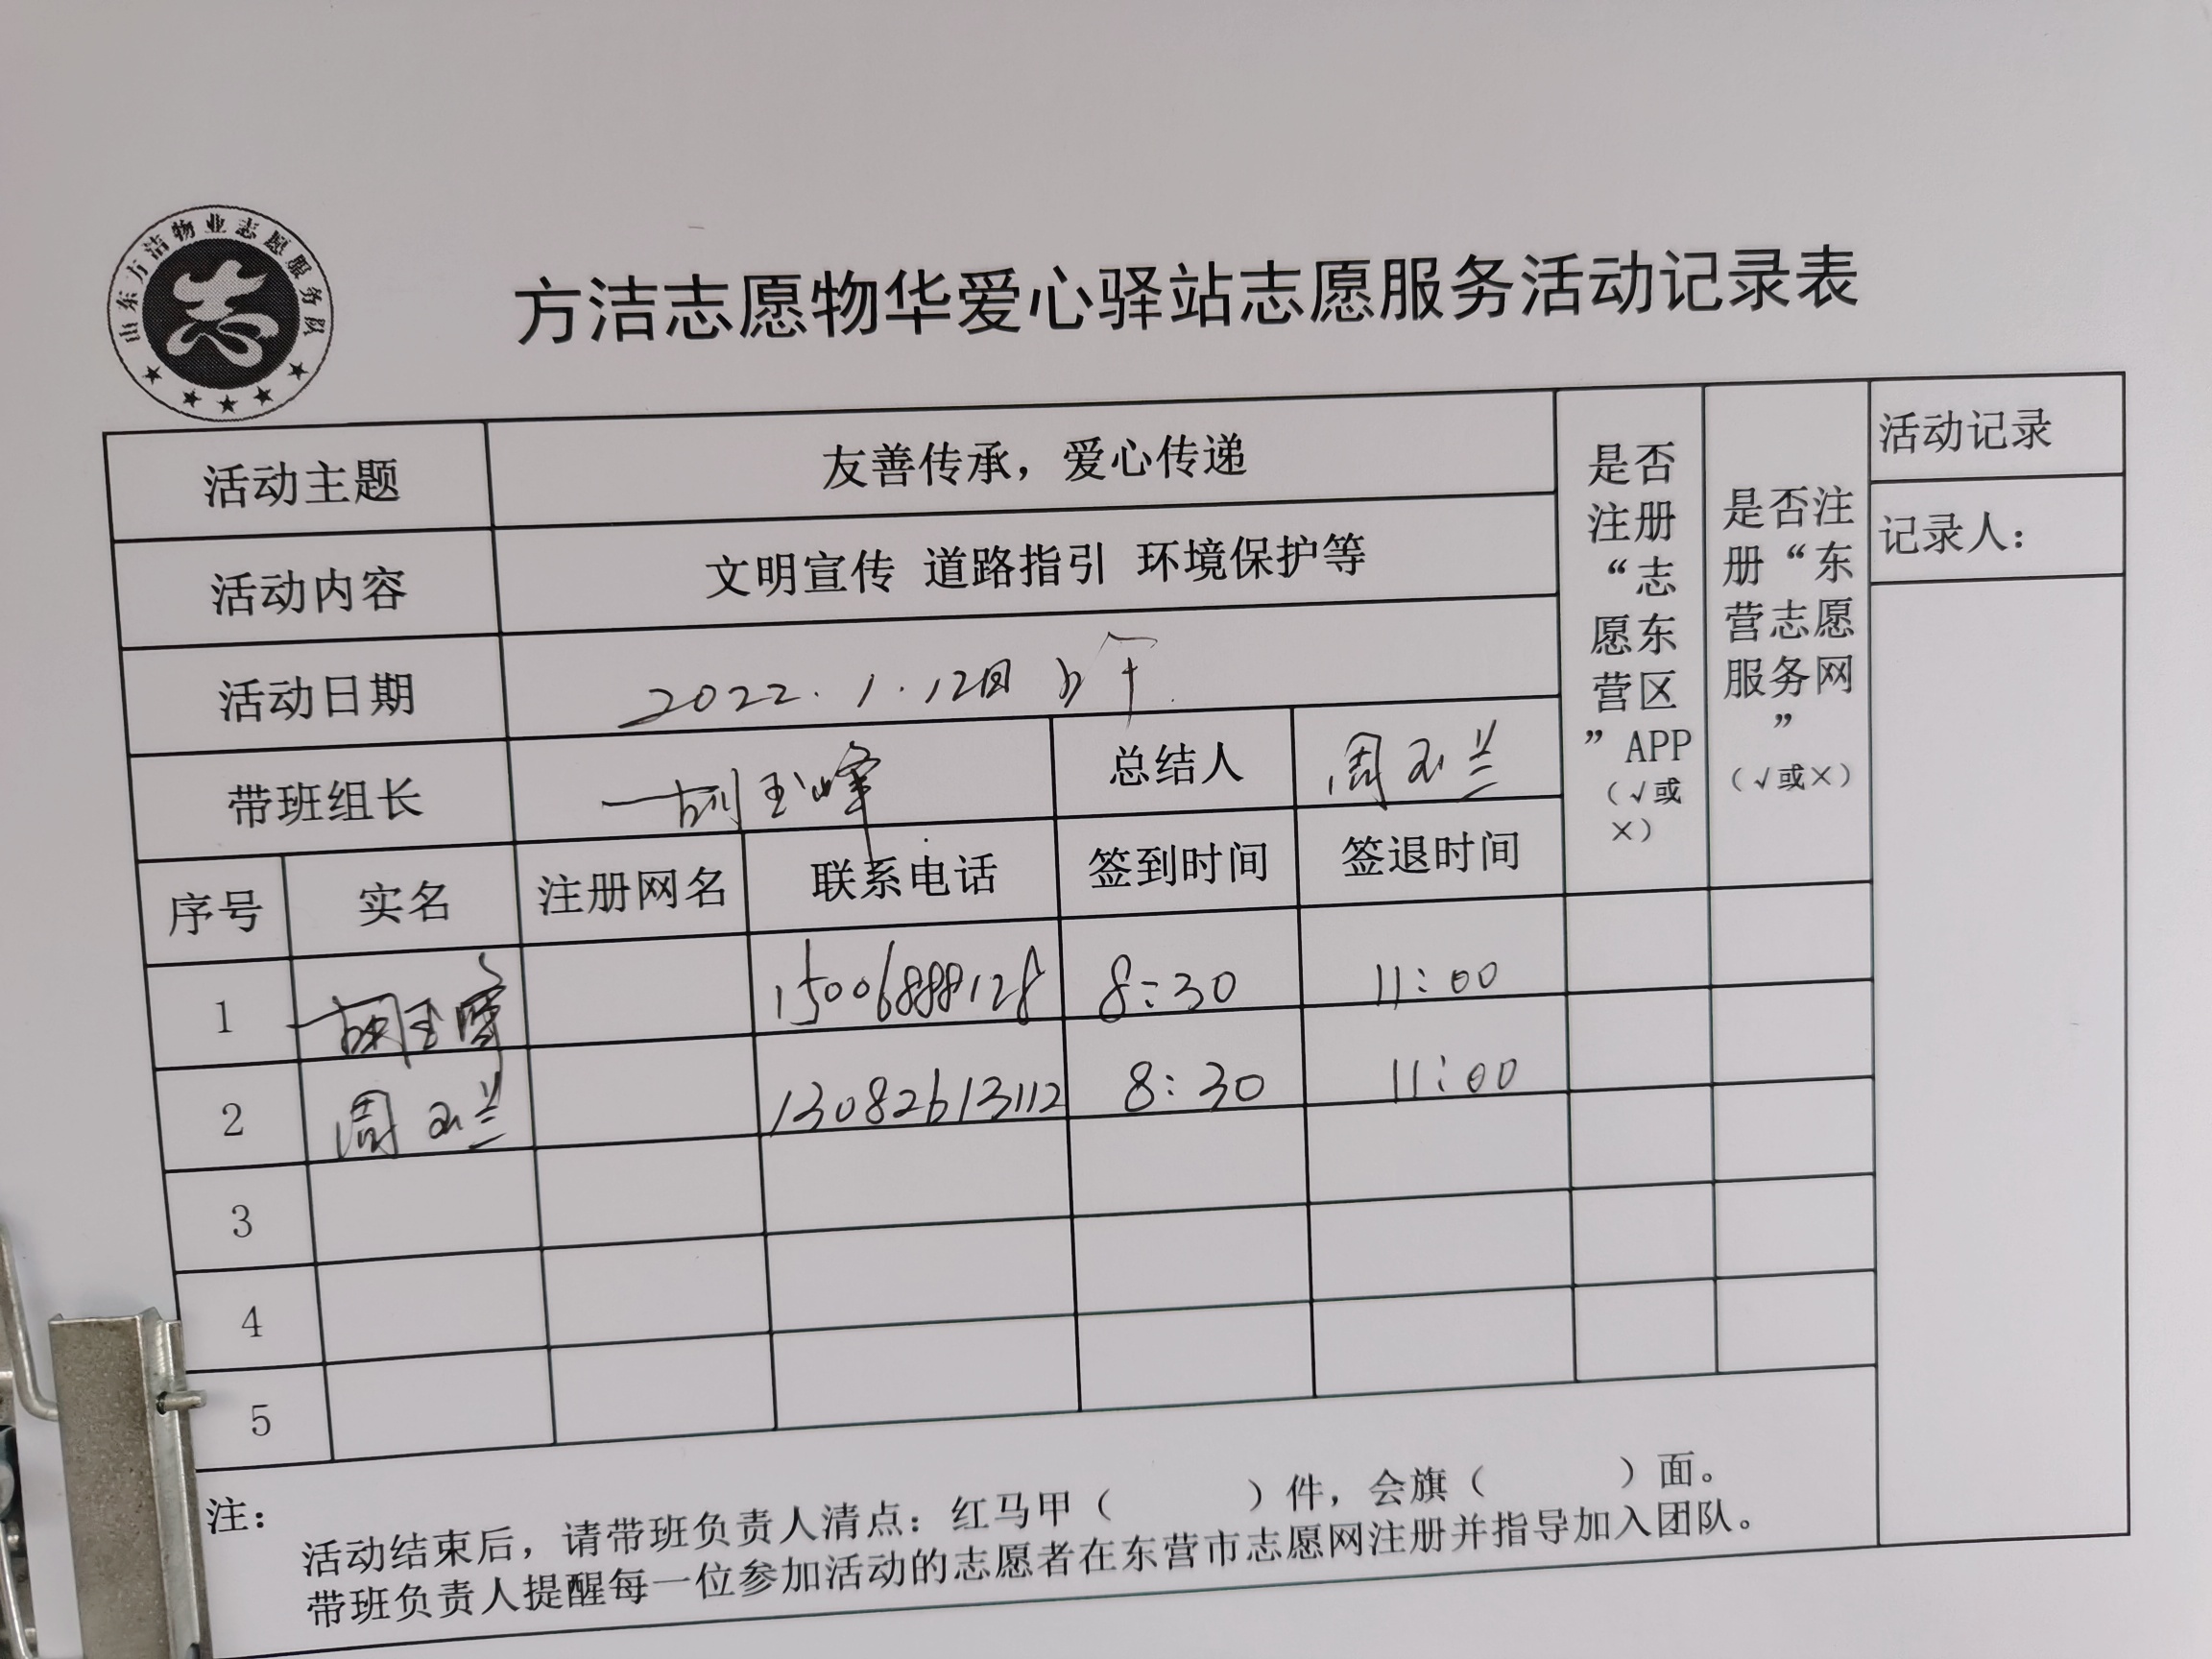 山东方洁物业志愿服务队
方洁志愿物华爱心驿站志愿服务活动记录表
活动主题 友善传承，爱心传递
活动内容 文明宣传 道路指引 环境保护等
活动日期 2022.1.12日 上午
带班组长 胡玉峰 总结人 周玉兰
序号 实名 注册网名 联系电话 签到时间 签退时间
是否
注册
“志
愿东
营区
”APP
（√或
×）
是否注
册“东
营志愿
服务网
”
（√或×）
活动记录
记录人：
1 胡玉峰 15006888128 8:30 11:00
2 周玉兰 13082613112 8:30 11:00
3
4
5
注：
活动结束后，请带班负责人清点：红马甲（ ）件，会旗（ ）面。
带班负责人提醒每一位参加活动的志愿者在东营市志愿网注册并指导加入团队。